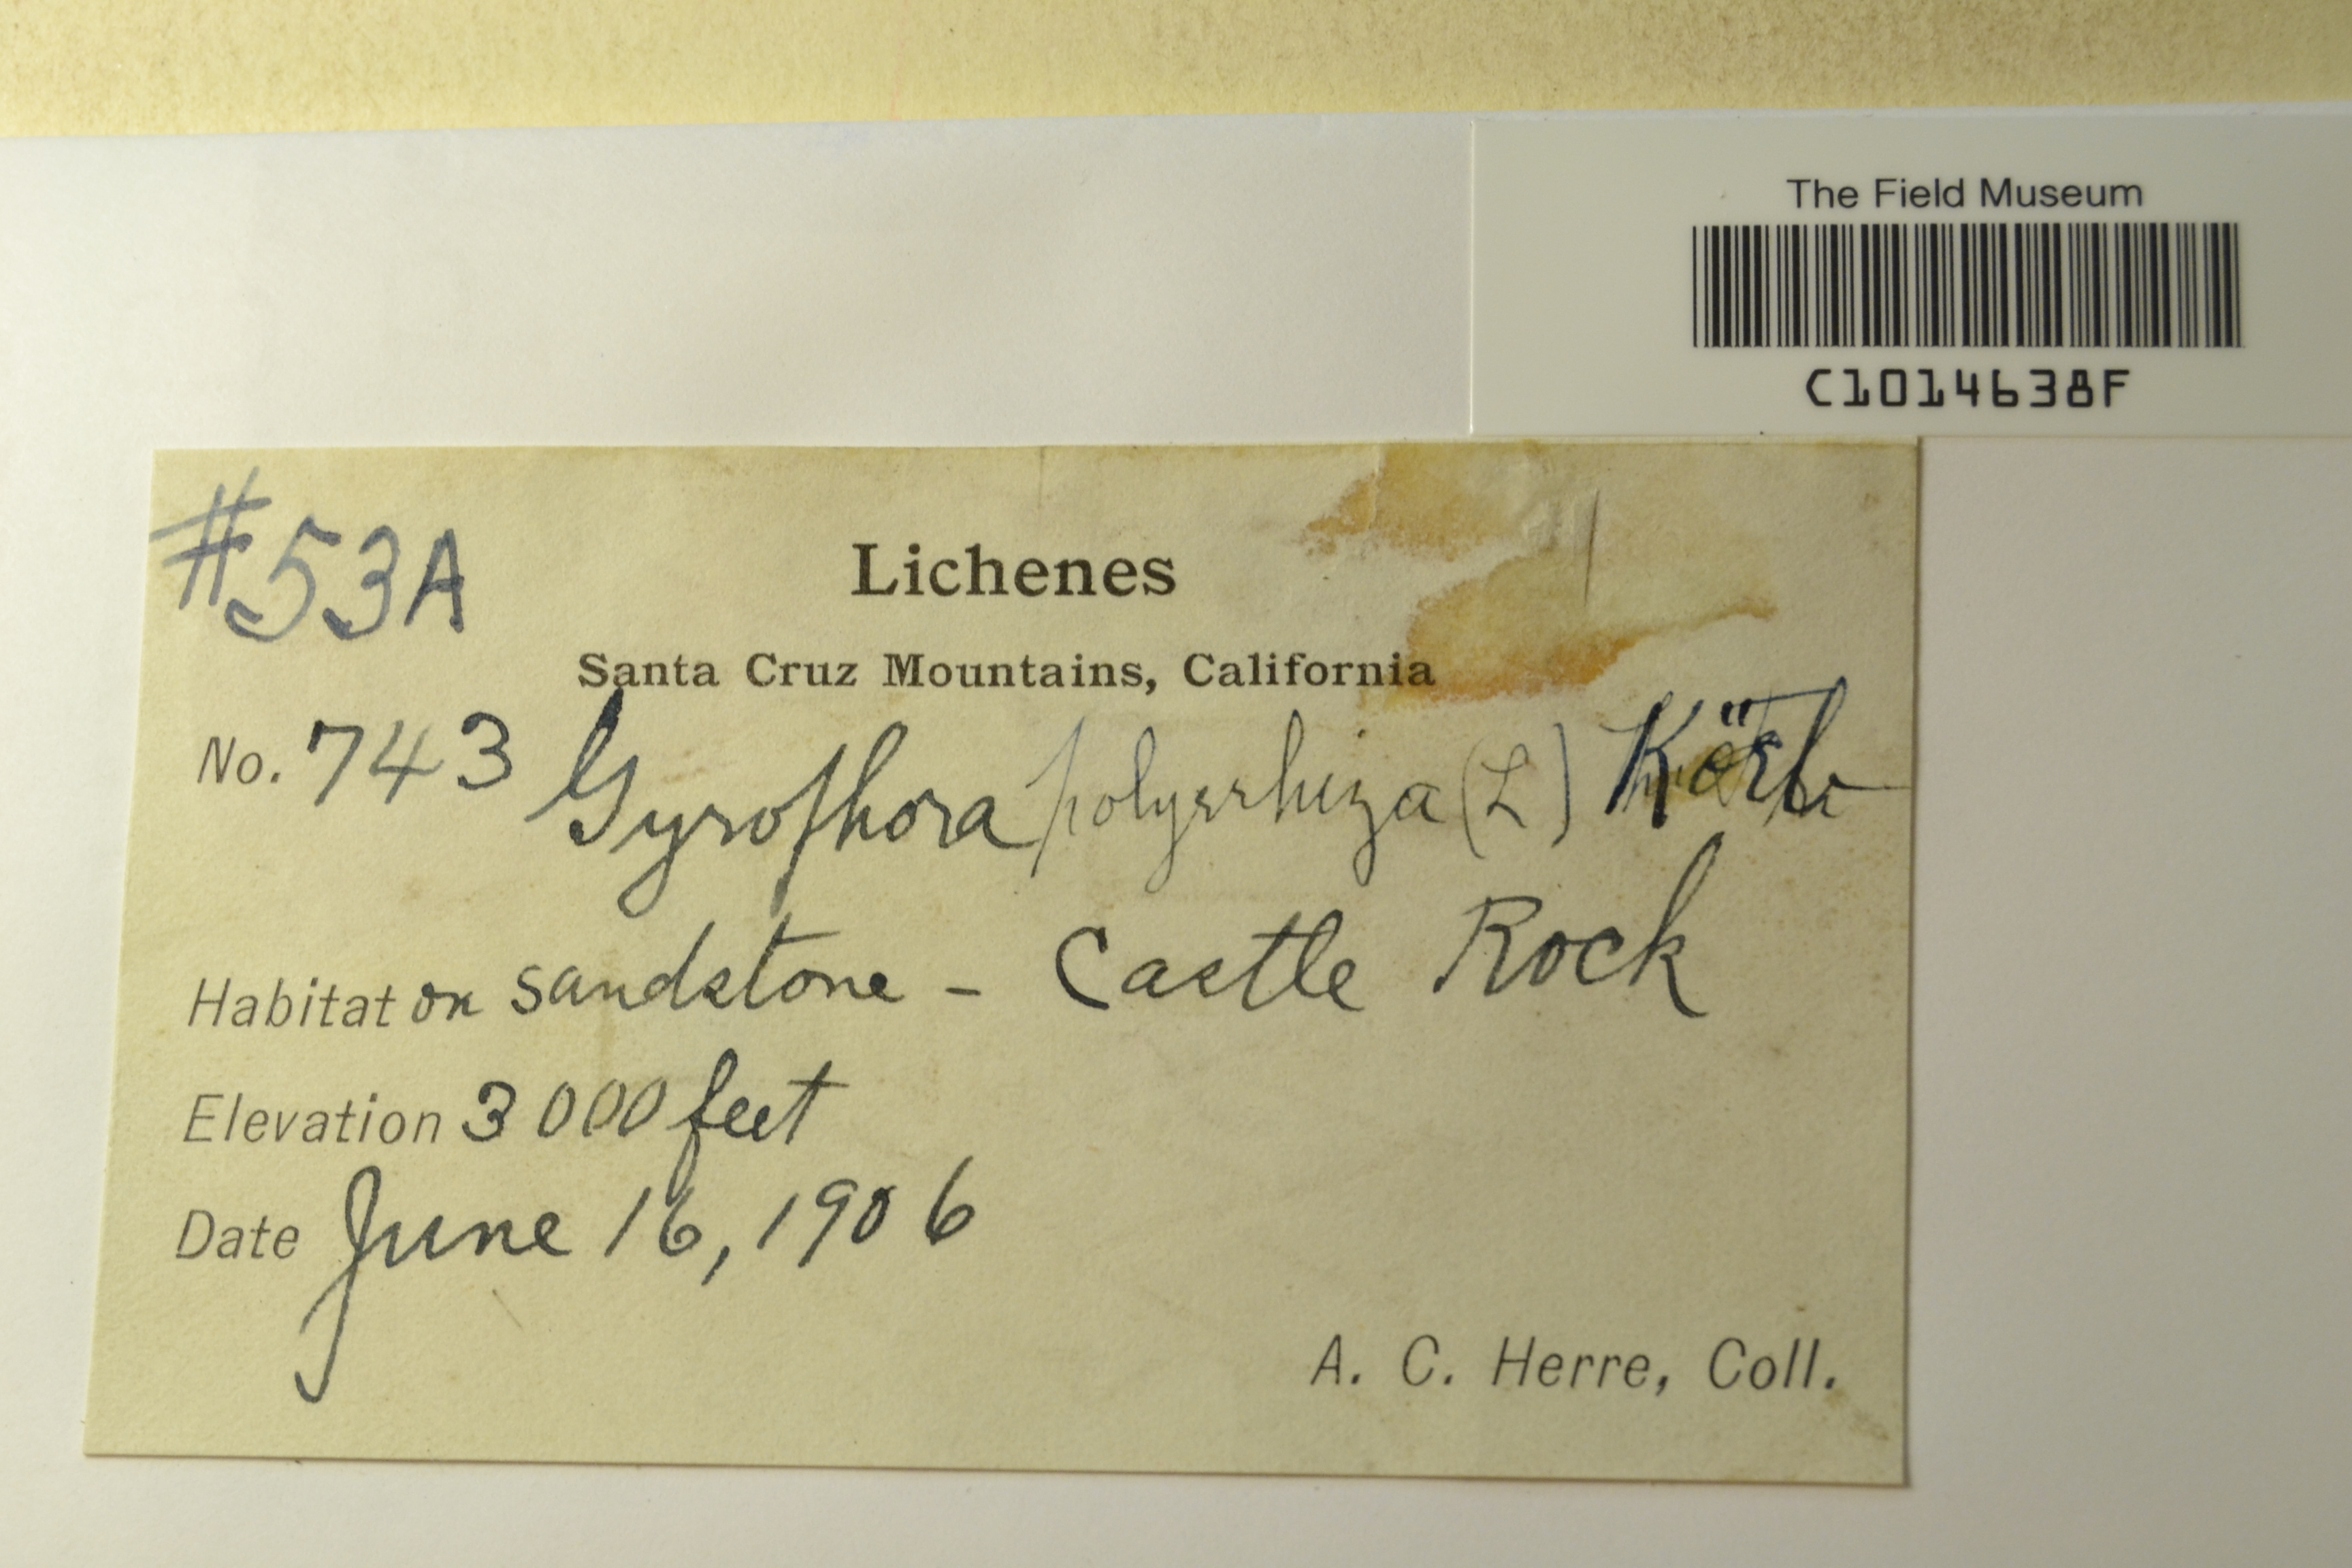 The Field Museum
C1014638F
#53A
Lichenes
Santa Cruz Mountains, California
No. 743 Gyrophora polyrrhiza (L) Körb
Habitat on sandstone - Castle Rock
Elevation 3000 feet
Date June 16, 1906
A. C. Herre, Coll.